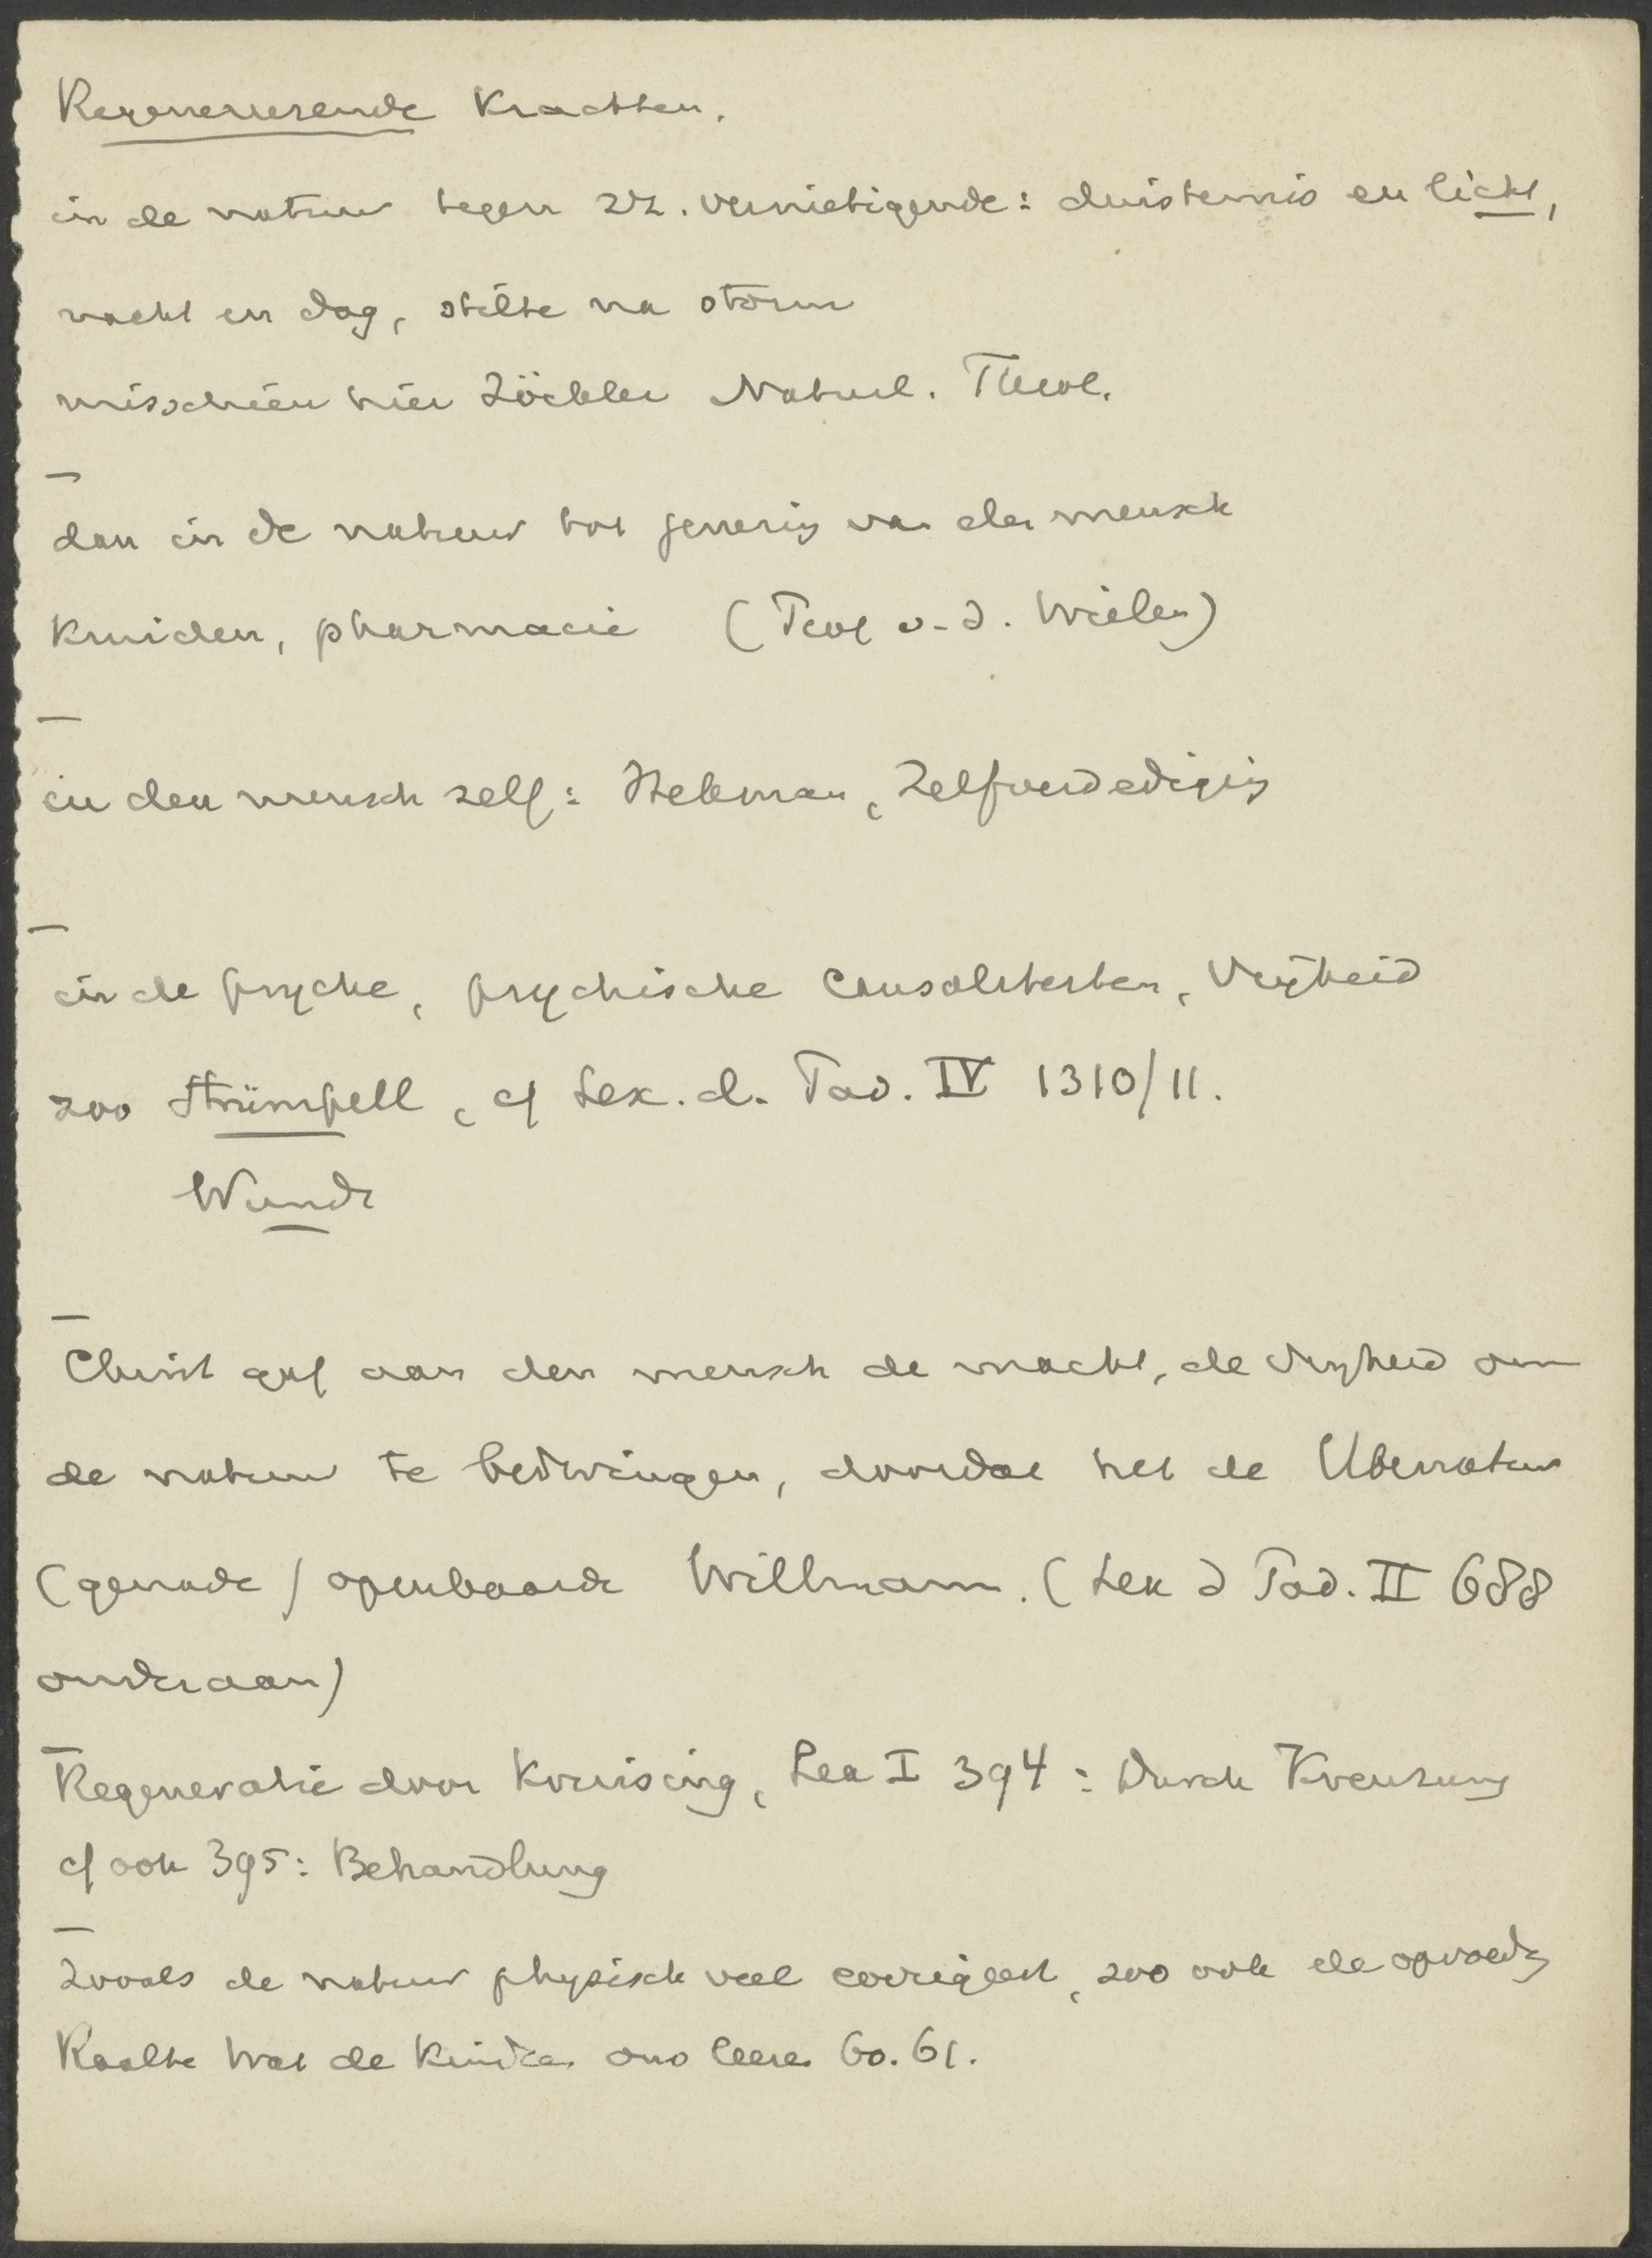 Regenererende Krachten.
in de natuur tegen zz. vernietigende: duisternis en licht,
nacht en dag, stilte na storm
misschien hier Zöckler Naturl. Theol.
—
dan in de natuur tot genezing van den mensch
Kruiden, pharmacie (Prof v. d. Wielen)
—
in den mensch zelf: Hekman, Zelfverdediging
—
in de psyche, psychische Causaliteiten, Vrijheid
zoo Strümpell, cf Lex. d. Päd. IV 1310/11.
Wundt
—
Christ gaf aan den mensch de macht, de vrijheid om
de natuur te bedwingen, doordat hij de Übernatur
(genade) openbaarde Willmann. (Lex d Päd. II 688
onderaan)
—
Regeneratie door Kruising, Lex I 394: Durch Kreuzung
cf ook 395: Behandlung
—
Zooals de natuur physisch veel corrigeert, zoo ook de opvoeding
Raalte Wat de Kinderen ons leeren 60. 61.